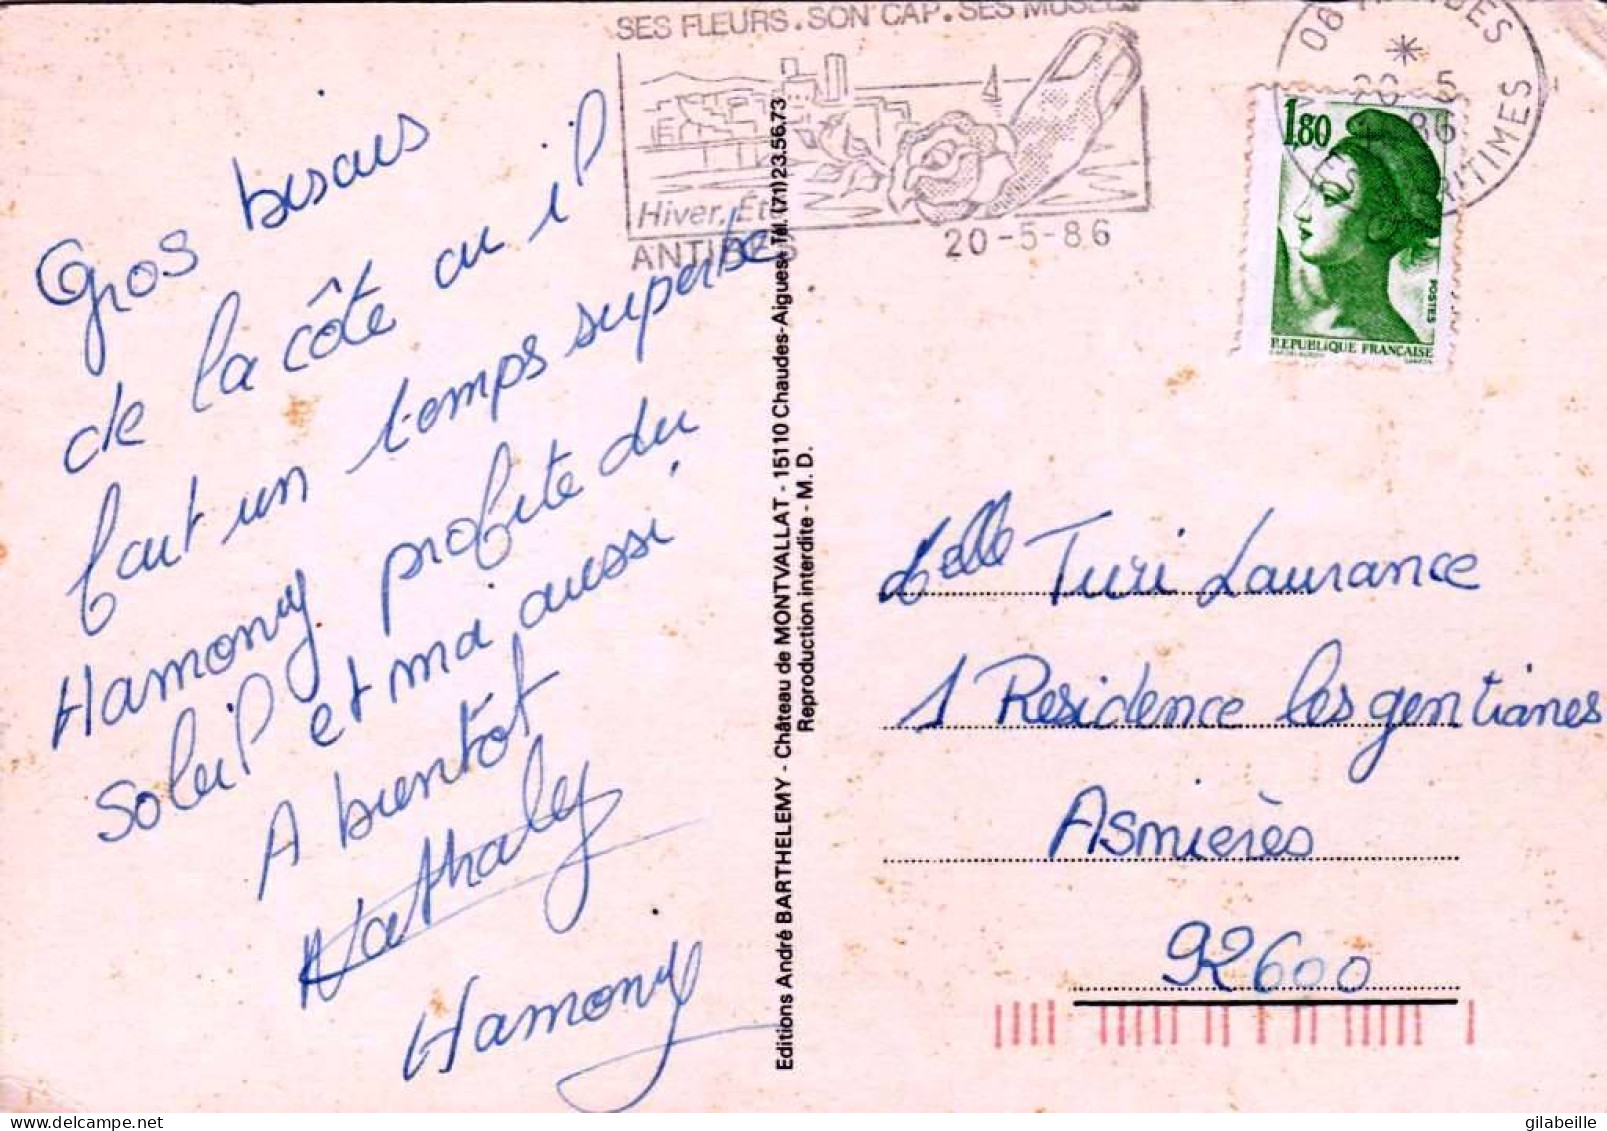 SES FLEURS. SON CAP. SES MUSÉES
Hiver. Ét
ANTIBES
20-5-86
06 ANTIBES
20-5
86
ALPES MARITIMES
1,80
POSTES
REPUBLIQUE FRANÇAISE
Gros bisous
de la côte ou il
fait un temps superbe
Hamony profite du
soleil et ma aussi
A bientôt
Nathaly
Hamony
Editions André BARTHELEMY - Château de MONTVALLAT - 15110 Chaudes-Aigues - Tél. (71) 23.56.73
Reproduction interdite - M. D.
Melle Turi Laurance
1 Residence les gentianes
Asnières
92600
gilabeille